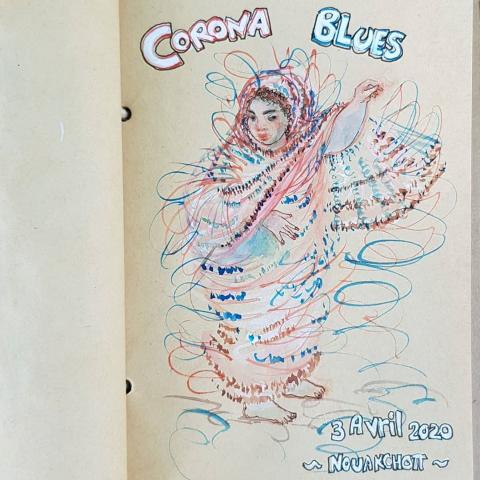 CORONA BLUES
3 Avril 2020
~ NOUAKCHOTT ~